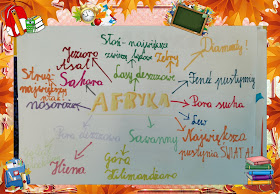 Słoń - największe
zwierzę lądowe
Zebry
Diamenty!
Jezioro
Asal
Lasy deszczowe
Struś
największy
ptak
Sahara
Fenek pustynny
nosorożec
AFRYKA
Pora sucha
Lew
Pora deszczowa
Sawanny
Największa
pustynia ŚWIATA!
Hiena
Góra
Kilimandżaro